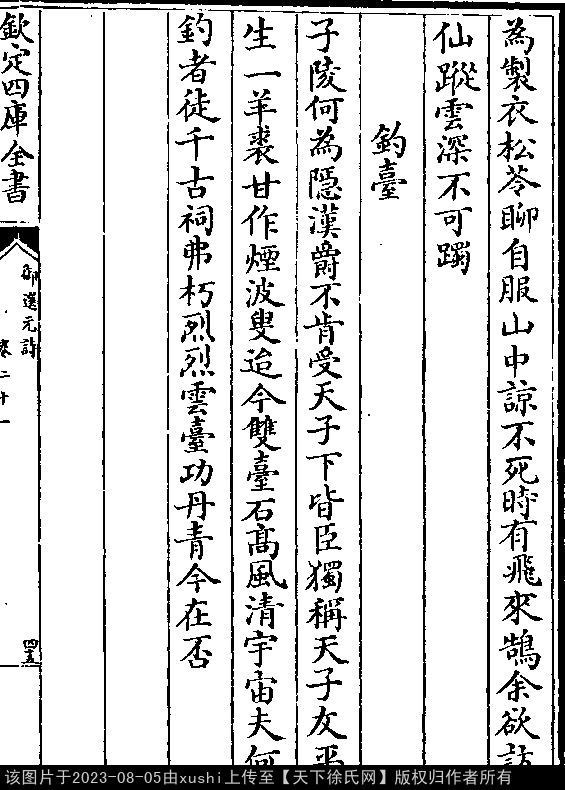 為製衣松苓聊自服山中諒不死時有飛來鵠余欲訪
仙蹤雲深不可躅
釣臺
子陵何為隱漢爵不肯受天子下皆臣獨稱天子友平
生一羊裘甘作煙波叟迨今雙臺石髙風清宇宙夫何
釣者徒千古祠弗朽烈烈雲臺功丹青今在否
欽定四庫全書
御選元詩
卷二十一
四五
该图片于2023-08-05由xushi上传至【天下徐氏网】版权归作者所有